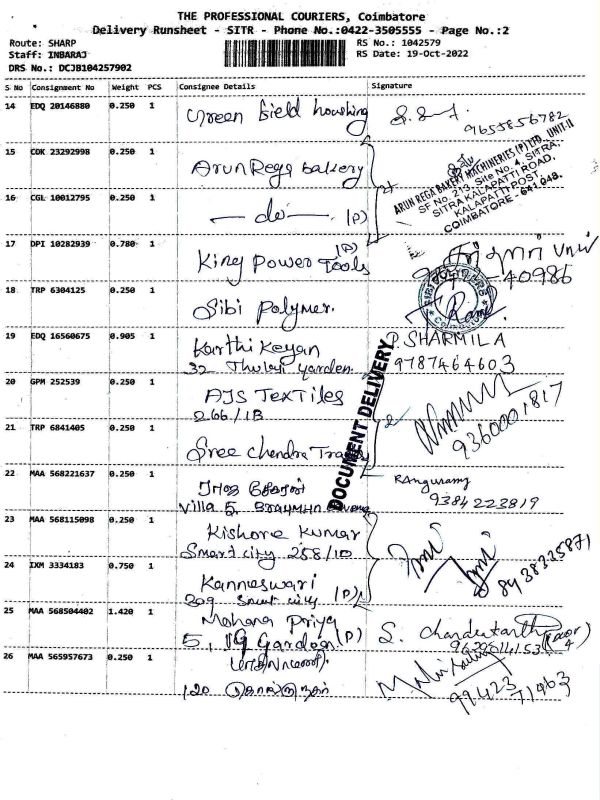 THE PROFESSIONAL COURIERS, Coimbatore
Delivery Runsheet - SITR - Phone No.:0422-3505555 - Page No.:2
Route: SHARP
RS No.: 1042579
Staff: INBARAJ
RS Date: 19-Oct-2022
DRS No.: DCJB104257902
S No Consignment No Weight PCS Consignee Details Signature
14 EDQ 20146880 0.250 1 Green field housing
9655856782
15 CDK 23292998 0.250 1 Arun Rega bakery
ARUN REGA BAKERY MACHINERIES (P) LTD., UNIT-II
SF No. 213, Site No. 4, SITRA,
SITRA KALAPATTI ROAD,
KALAPATTI POST,
COIMBATORE - 641 048.
16 CGL 10012795 0.250 1 - do - (P)
17 DPI 10282939 0.780 1 King Power Tools (P)
40986
18 TRP 6304125 0.250 1 Sibi Polymer.
Coimbatore
19 EDQ 16560675 0.905 1 Karthi Keyan
32 Thulasi garden
P. SHARMILA
9787464603
20 GPM 252539 0.250 1 AJS Textiles
266/1B
DOCUMENT DELIVERY
9360001817
21 TRP 6841405 0.250 1 Sree Chendra
22 MAA 568221637 0.250 1
Villa 5,
9384223819
23 MAA 568115098 0.250 1 Kishore Kumar
Smart city 258/10
24 IXM 3334183 0.750 1 Kanneswari
209 Smart city (P)
8438335871
25 MAA 568504402 1.420 1 Mahara Priya
5, VG Garden (P)
S. Chandrakanth
26 MAA 565957673 0.250 1
120
99423
71463